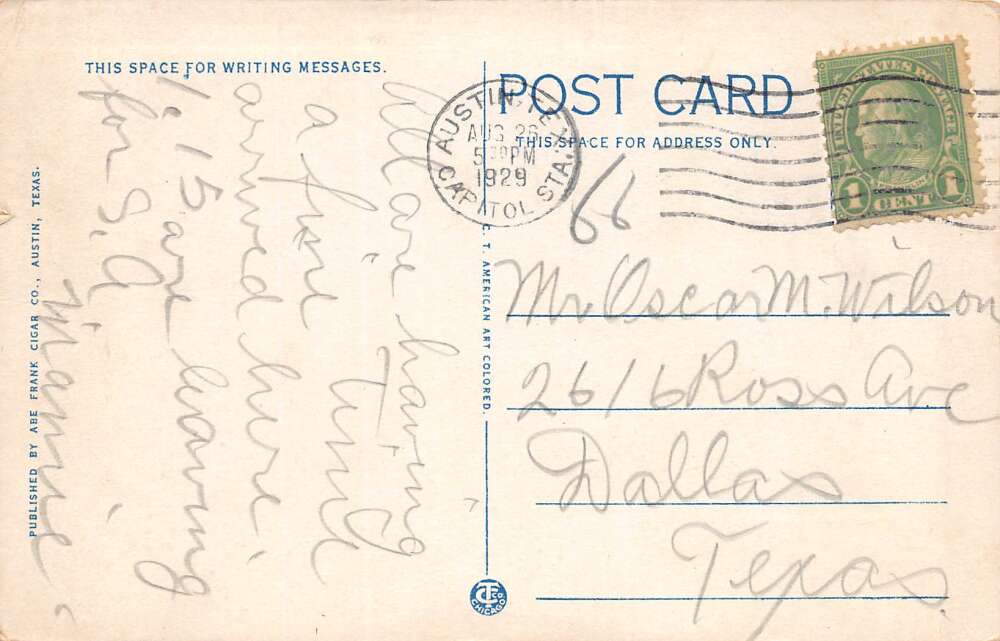 THIS SPACE FOR WRITING MESSAGES.
All are having
a fine time
arrived here
1:15 are leaving
for S.A.
Mamie
PUBLISHED BY ABE FRANK CIGAR CO., AUSTIN, TEXAS.
C. T. AMERICAN ART COLORED.
CT CO
CHICAGO
POST CARD
THIS SPACE FOR ADDRESS ONLY.
AUSTIN, TEX.
AUG 26
5 30 PM
1929
CAPITOL STA.
UNITED STATES POSTAGE
1 CENT 1
66
Mr Oscar M. Wilson
2616 Ross Ave
Dallas
Texas